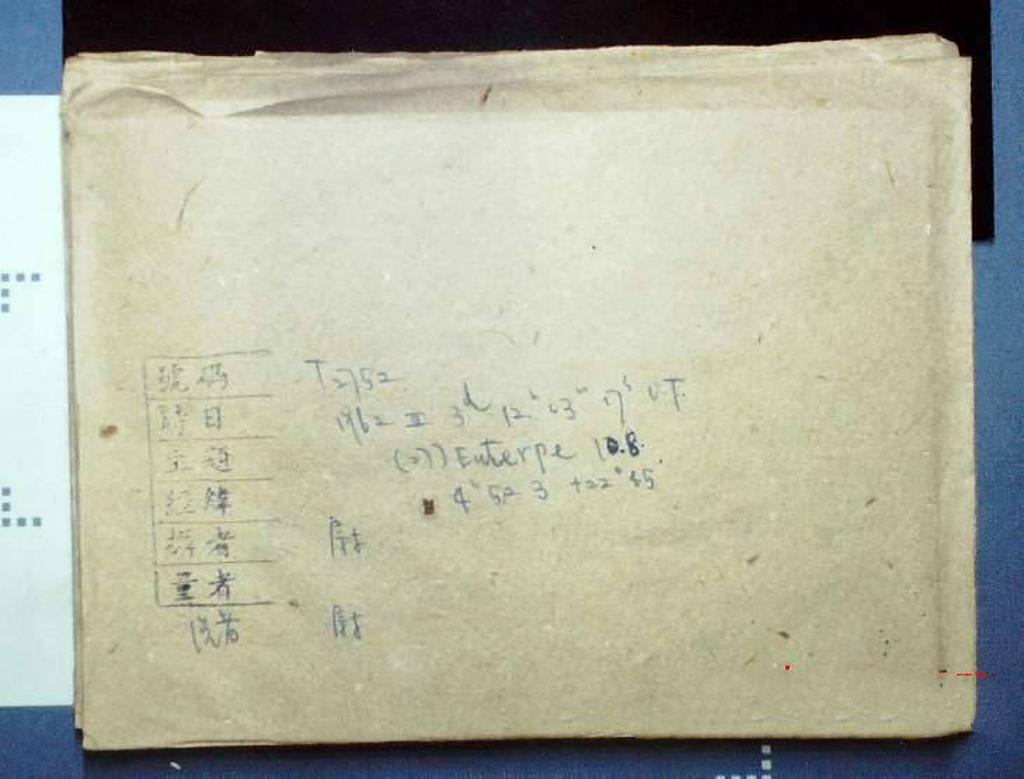 號碼 T2752
時日 1962 II 3ᵈ 12ʰ 03ᵐ 17ˢ U.T.
主題 (27) Euterpe 10.8
經緯 4ʰ 52 3 +22° 45′
攝者
量者
洗者